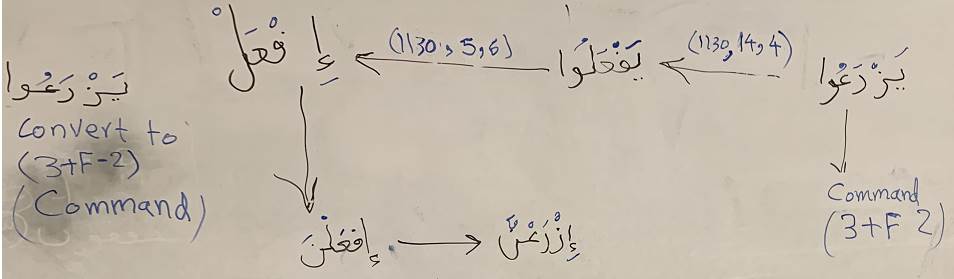 يَزْرَعُوا
Convert to
(3+F-2)
(Command)
إِفْعَلْ
(1130, 5, 6)
يَفْعَلُوا
(1130, 14, 4)
يَزْرَعُوا
Command
(3+F 2)
إِفْعَلْنَ
إِزْرَعْنَ